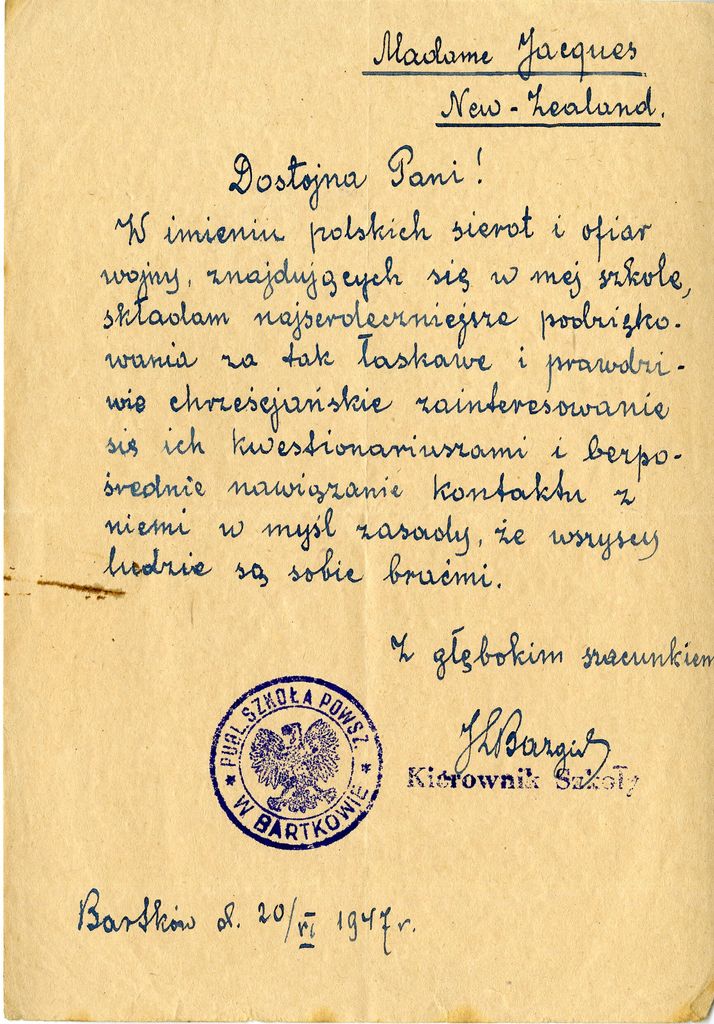 Madame Jacques
New-Zealand.
Dostojna Pani!
W imieniu polskich sierot i ofiar
wojny, znajdujących się w mej szkole,
składam najserdeczniejsze podzięko-
wania za tak łaskawe i prawdzi-
wie chrześcjańskie zainteresowanie
się ich kwestionariuszami i bezpo-
średnie nawiązanie kontaktu z
niemi w myśl zasady, że wszyscy
ludzie są sobie braćmi.
Z głębokim szacunkiem
Kierownik Szkoły
* PUBL. SZKOŁA POWSZ. *
W BARTKOWIE
Bartków d. 20/VI 1947 r.